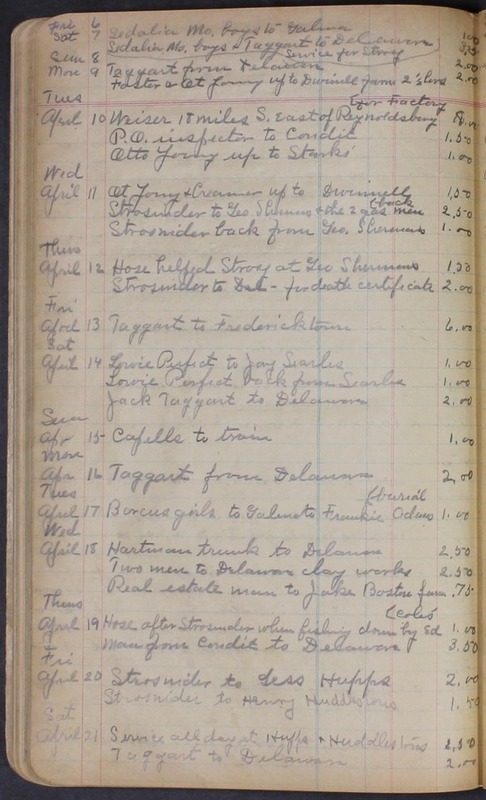 Fri 6
Sat 7 Sedalia Mo. boys to Galena 1.00
Sedalia Mo. boys & Taggart to Delaware
Sun 8 Service for Strosy
Mon 9 Taggart from Delaware 2.00
Foster & At Jonny up to Dwinell farm 2 ½ hrs 2.00
Tues for Factory
April 10 Weiser 18 miles S. East of Reynoldsburg 8.00
P.O. inspector to Condit 1.50
Otto Jonny up to Starks' 1.00
Wed
April 11 At Jonny & Creamer up to Dwinnells 1.50
Strosnider to Geo. Shermans & the 2 gas men back 2.50
Strosnider back from Geo. Shermans 1.00
Thurs
April 12 Hose helped Strosy at Geo Shermans
Strosnider to Del - for death certificate 2.00
Fri
April 13 Taggart to Fredericktown 6.00
Sat
April 14 Lowie Perfect to Jay Searles 1.00
Lowie Perfect back from Searles 1.00
Jack Taggart to Delaware 2.00
Sun
Apr 15 Capells to train 1.00
Mon
Apr 16 Taggart from Delaware 2.00
Tues burial
April 17 Barcus girls to Galena to Frankie Adams 1.00
Wed
April 18 Hartman trunk to Delaware 2.50
Two men to Delaware clay works 2.50
Real estate man to Jake Boston farm .75
Thurs Coles
April 19 Hose after Strosnider when fishing down by Ed 1.00
Man from Condit to Delaware 3.50
Fri
April 20 Strosnider to Less Hupps 2.00
Strosnider to Henry Huddlestons 1.50
Sat
April 21 Service all day at Hupps & Huddlestons 2.50
Taggart to Delaware 2.00